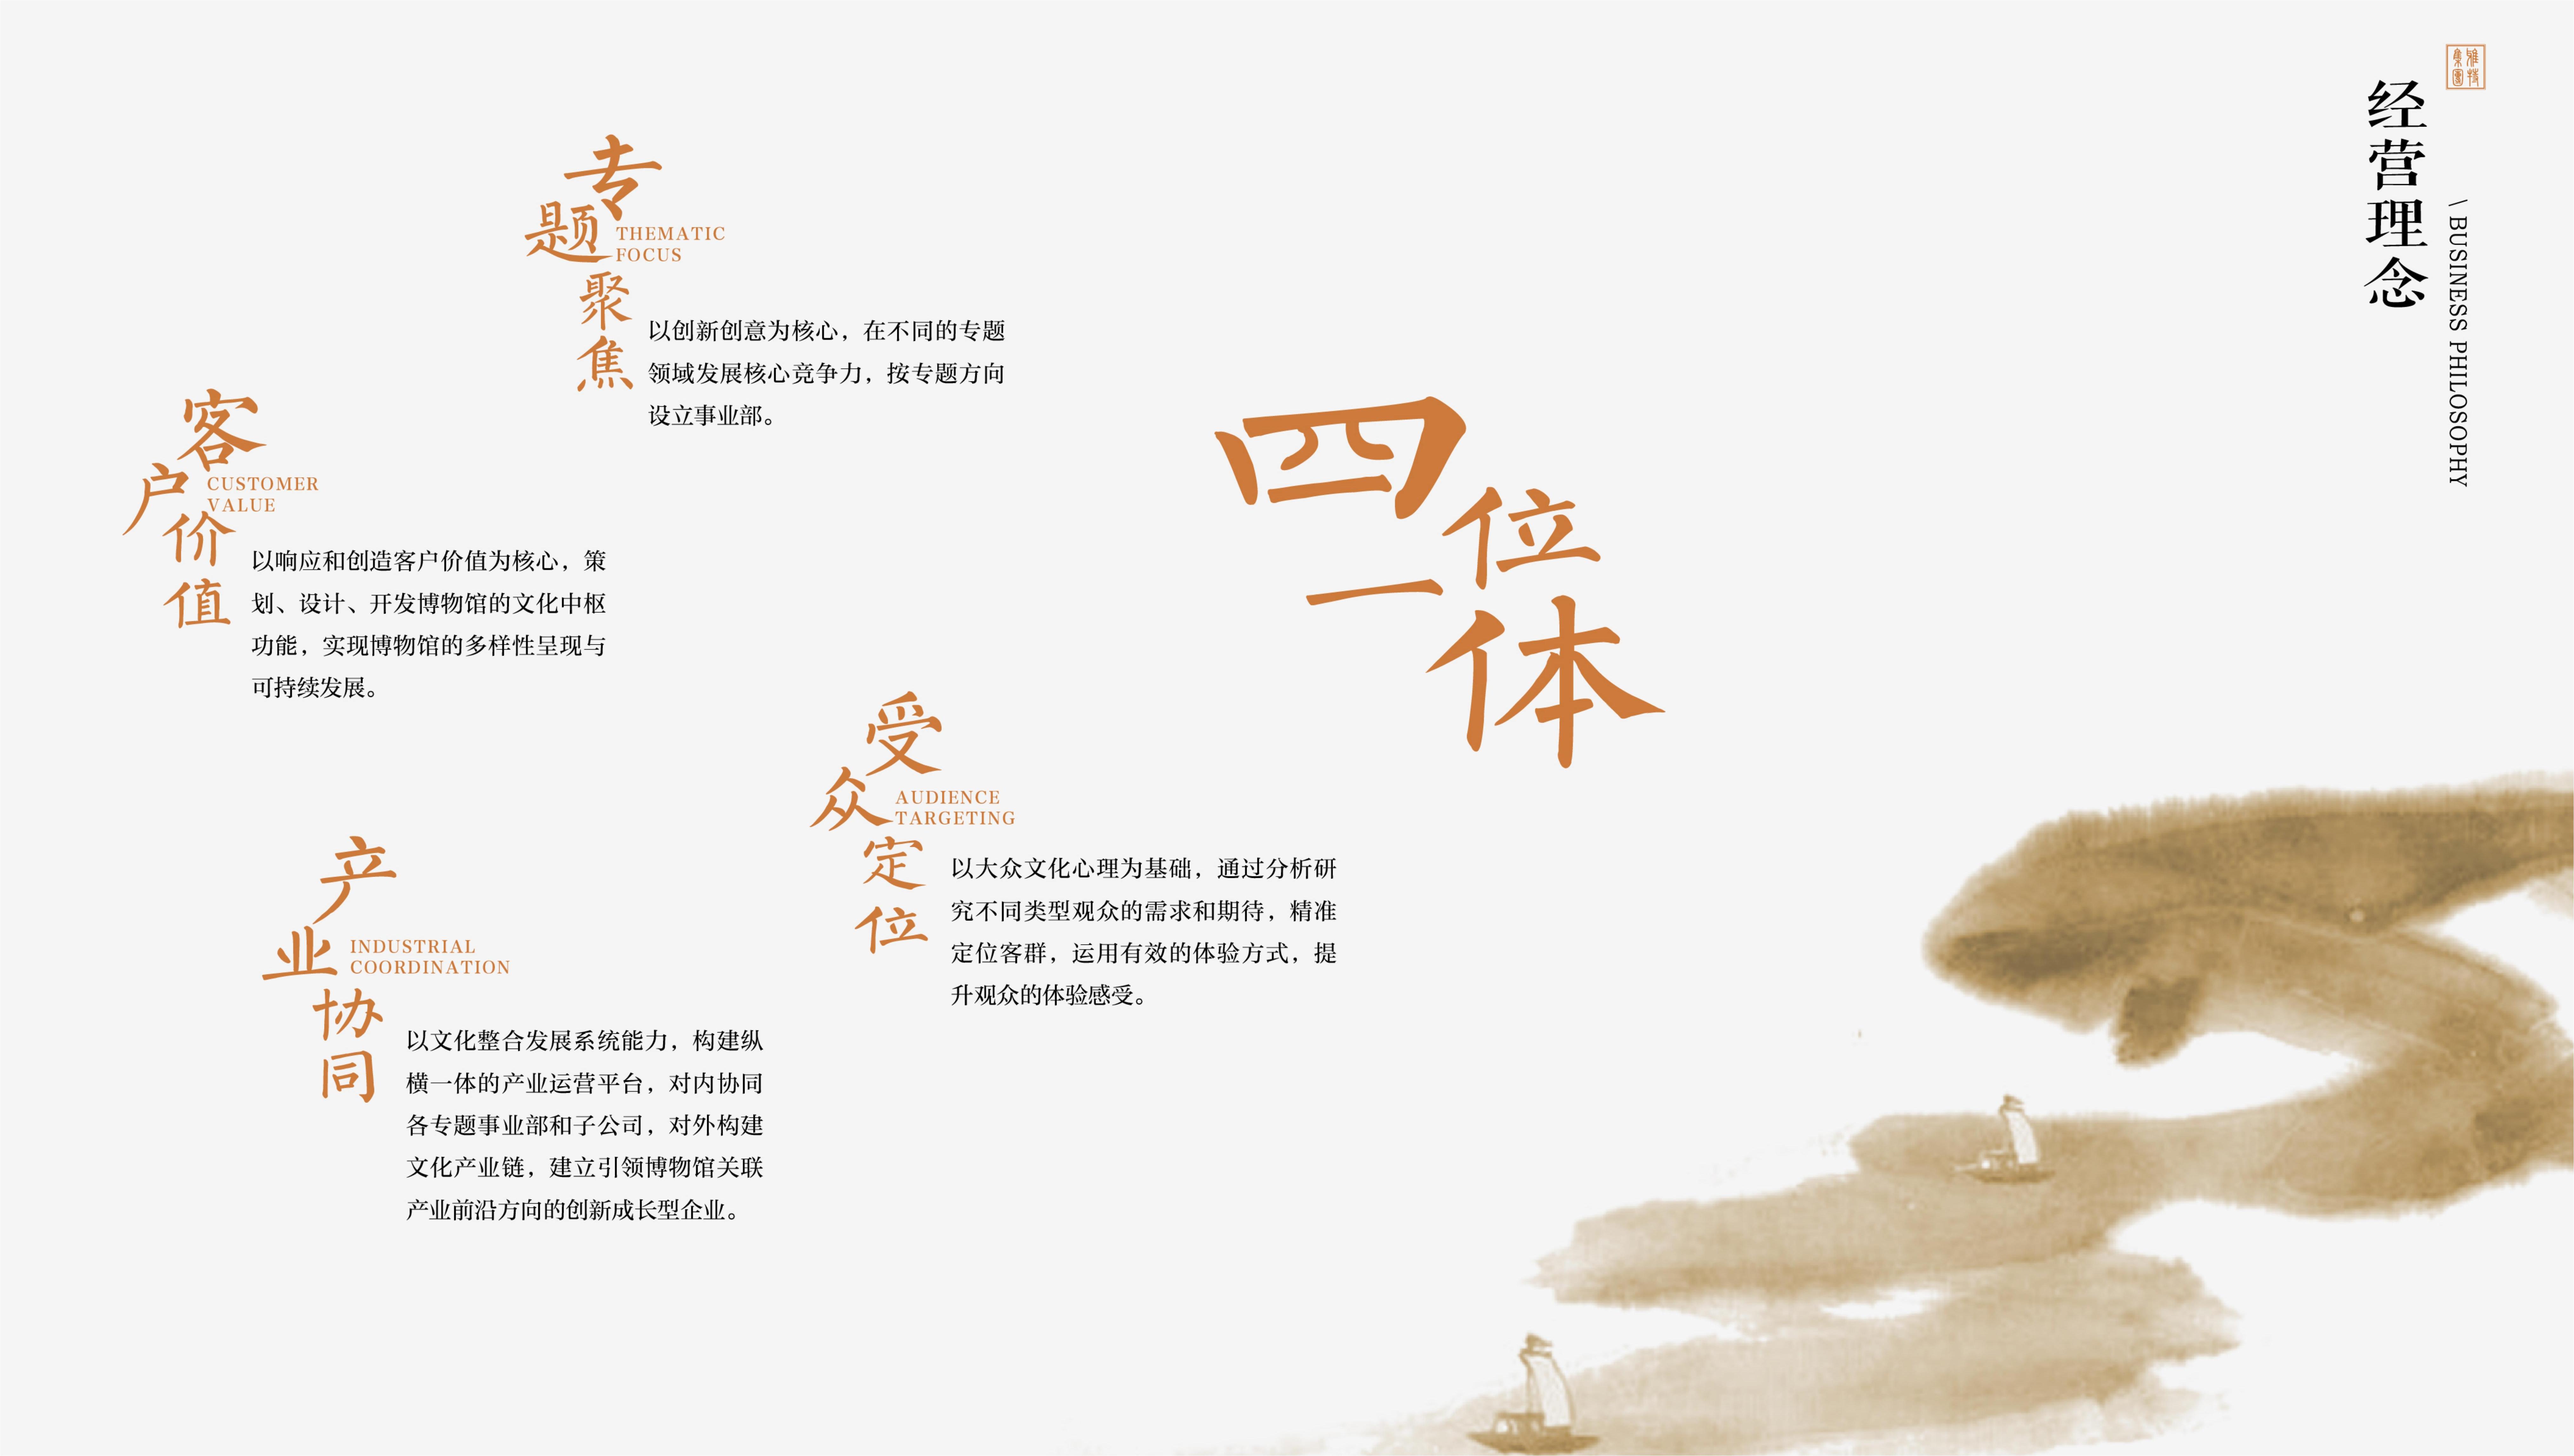 雅持
集團
经营理念
\ BUSINESS PHILOSOPHY
四位一体
专题聚焦
THEMATIC
FOCUS
以创新创意为核心，在不同的专题
领域发展核心竞争力，按专题方向
设立事业部。
客户价值
CUSTOMER
VALUE
以响应和创造客户价值为核心，策
划、设计、开发博物馆的文化中枢
功能，实现博物馆的多样性呈现与
可持续发展。
受众定位
AUDIENCE
TARGETING
以大众文化心理为基础，通过分析研
究不同类型观众的需求和期待，精准
定位客群，运用有效的体验方式，提
升观众的体验感受。
产业协同
INDUSTRIAL
COORDINATION
以文化整合发展系统能力，构建纵
横一体的产业运营平台，对内协同
各专题事业部和子公司，对外构建
文化产业链，建立引领博物馆关联
产业前沿方向的创新成长型企业。